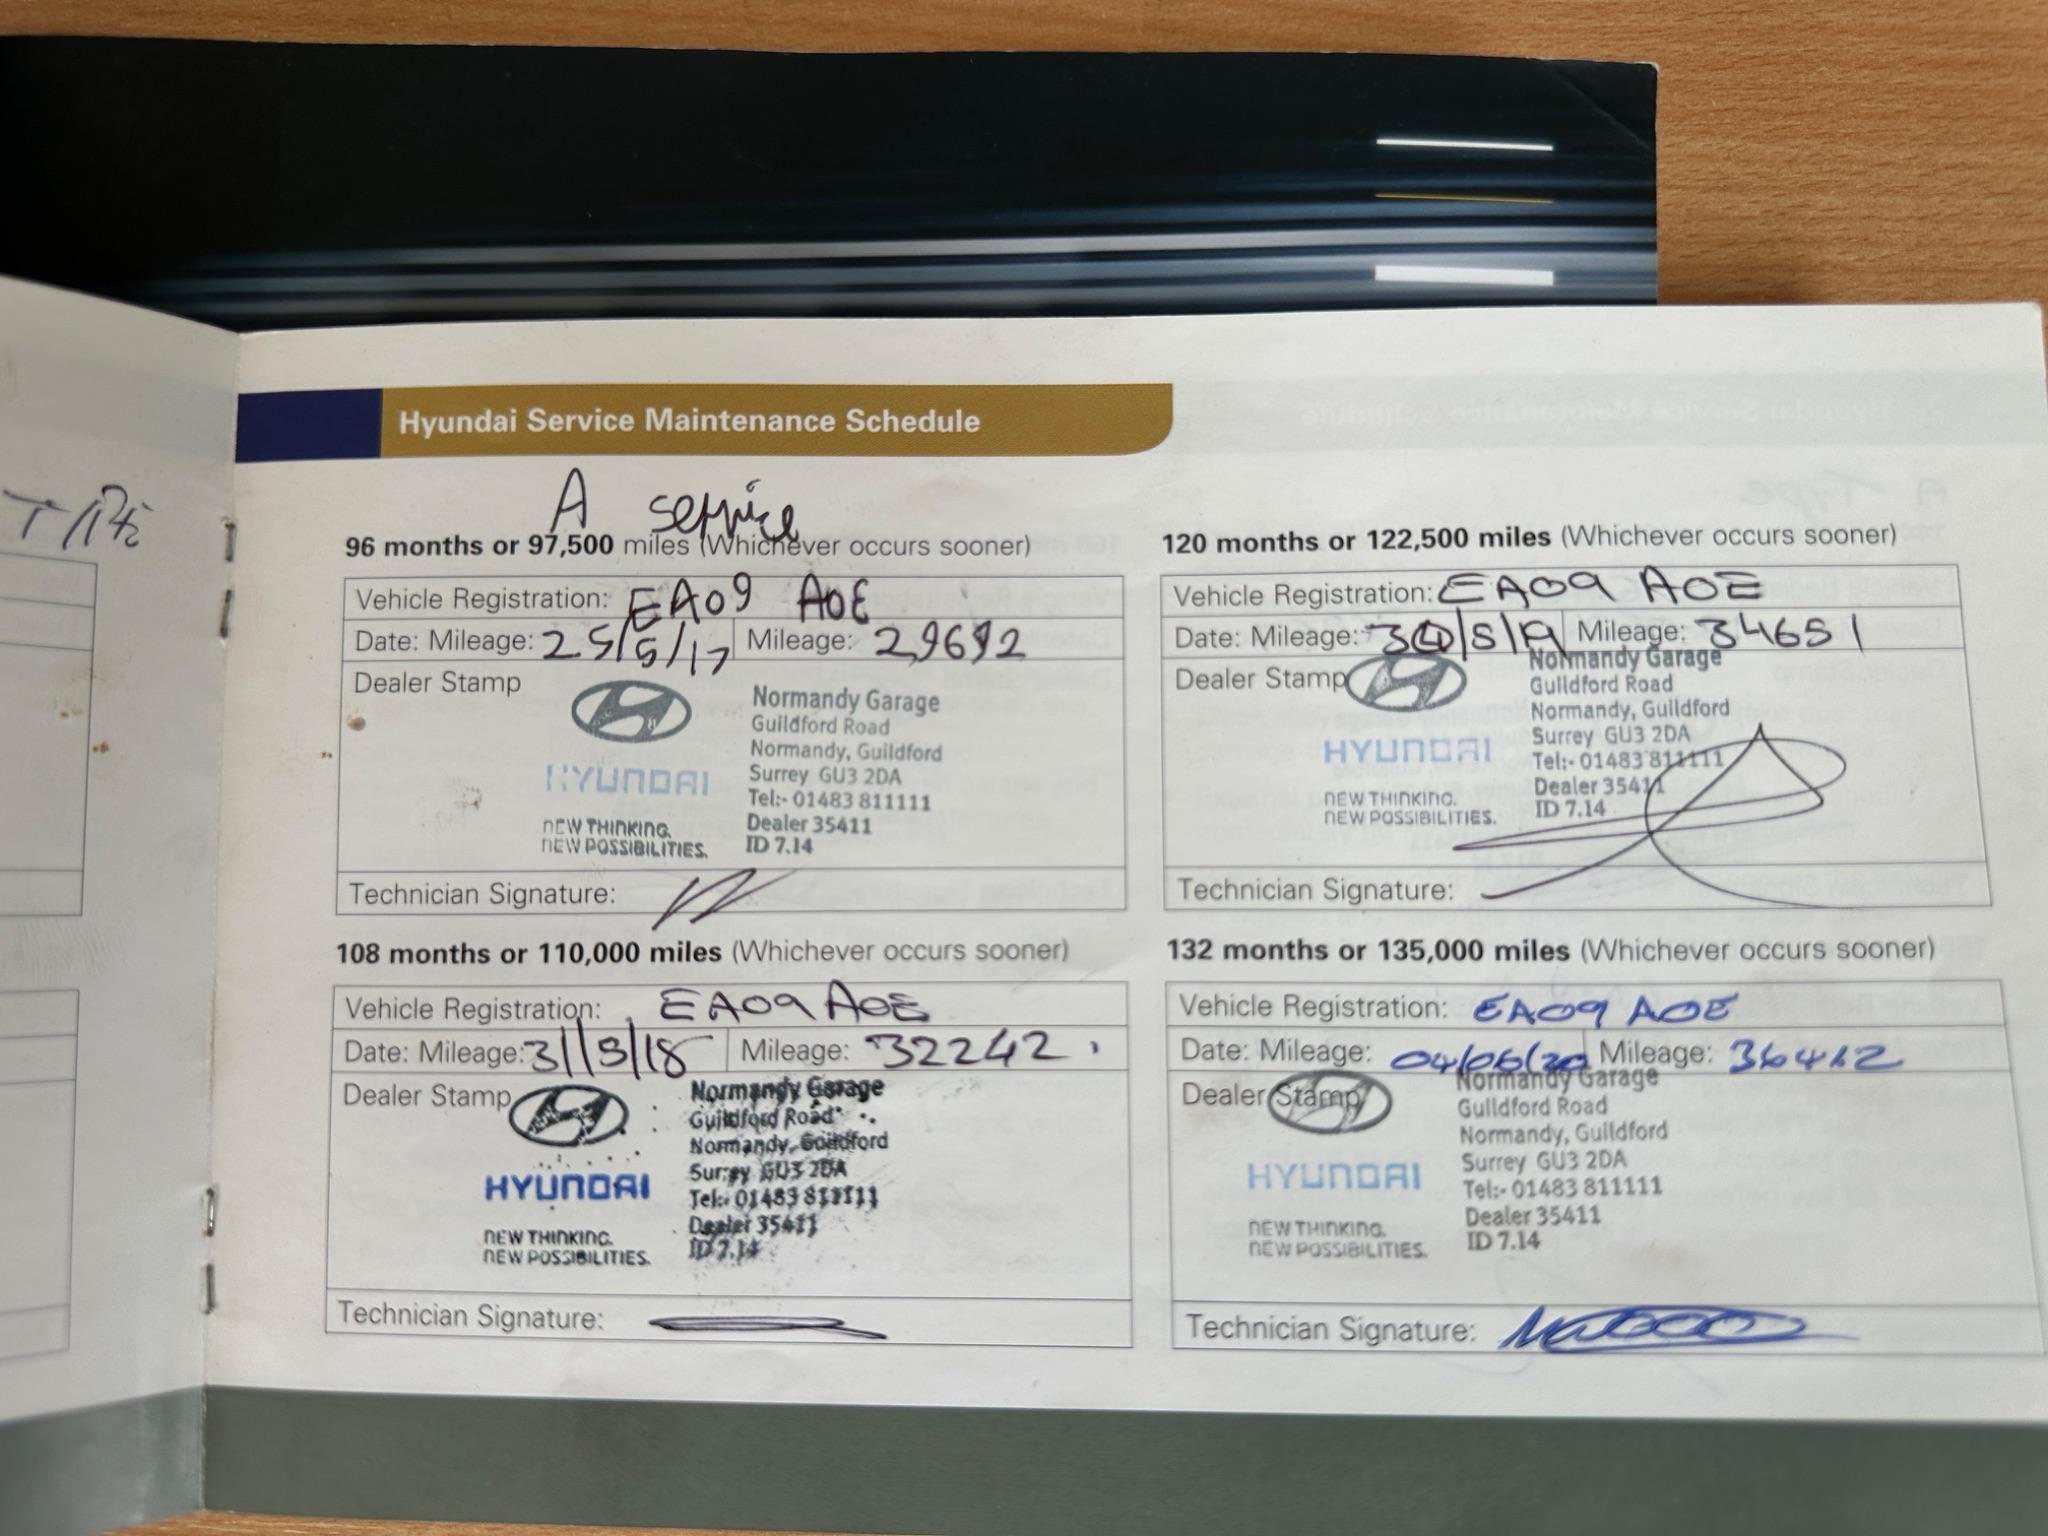 Hyundai Service Maintenance Schedule
A service
96 months or 97,500 miles (Whichever occurs sooner)
Vehicle Registration: EA09 AOE
Date: Mileage: 25/5/17 Mileage: 29692
Dealer Stamp
HYUNDAI
NEW THINKING.
NEW POSSIBILITIES.
Normandy Garage
Guildford Road
Normandy, Guildford
Surrey GU3 2DA
Tel:- 01483 811111
Dealer 35411
ID 7.14
Technician Signature:
108 months or 110,000 miles (Whichever occurs sooner)
Vehicle Registration: EA09 AOE
Date: Mileage: 31/5/18 Mileage: 32242
Dealer Stamp
HYUNDAI
NEW THINKING.
NEW POSSIBILITIES.
Normandy Garage
Guildford Road
Normandy, Guildford
Surrey GU3 2DA
Tel:- 01483 811111
Dealer 35411
ID 7.14
Technician Signature:
120 months or 122,500 miles (Whichever occurs sooner)
Vehicle Registration: EA09 AOE
Date: Mileage: Mileage: 34651
Dealer Stamp
HYUNDAI
NEW THINKING.
NEW POSSIBILITIES.
Normandy Garage
Guildford Road
Normandy, Guildford
Surrey GU3 2DA
Tel:- 01483 811111
Dealer 35411
ID 7.14
Technician Signature:
132 months or 135,000 miles (Whichever occurs sooner)
Vehicle Registration: EA09 AOE
Date: Mileage: 04/06/20 Mileage: 36412
Dealer Stamp
HYUNDAI
NEW THINKING.
NEW POSSIBILITIES.
Normandy Garage
Guildford Road
Normandy, Guildford
Surrey GU3 2DA
Tel:- 01483 811111
Dealer 35411
ID 7.14
Technician Signature: